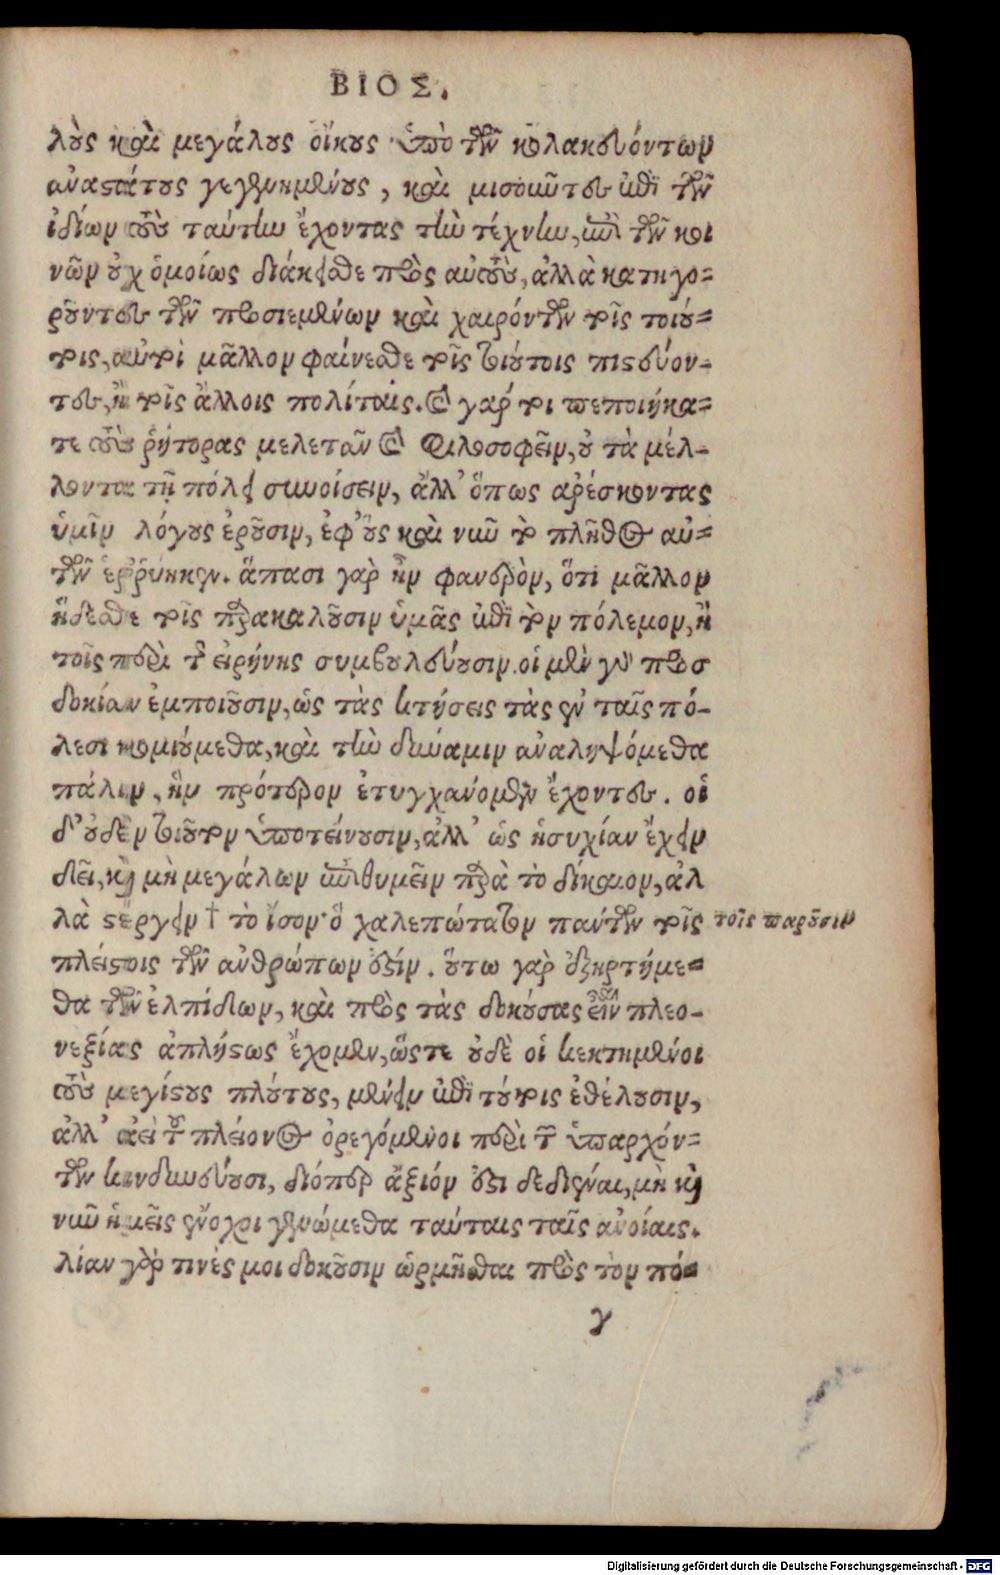 ΒΙΟΣ.
λοὺς καὶ μεγάλους οἴκους ὑπὸ τῶν κολακευόντων
ἀναστάτους γεγενημένους, καὶ μισοῦντες ἐπὶ τῶν
ἰδίων τοὺς ταύτην ἔχοντας τὴν τέχνην, ἐπὶ τῶν κοι
νῶν οὐχ ὁμοίως διάκεισθε πρὸς αὐτοὺς, ἀλλὰ κατηγο-
ροῦντες τῶν προσιεμένων καὶ χαιρόντων τοῖς τοιού-
τοις, αὐτοὶ μᾶλλον φαίνεσθε τοῖς τοιούτοις πιστεύον-
τες, ἢ τοῖς ἄλλοις πολίταις. καὶ γάρ τοι πεποιήκα-
τε τοὺς ῥήτορας μελετᾶν καὶ φιλοσοφεῖν, οὐ τὰ μέλ-
λοντα τῇ πόλει συνοίσειν, ἀλλ' ὅπως ἀρέσκοντας
ὑμῖν λόγους ἐροῦσιν, ἐφ' οὓς καὶ νῦν τὸ πλῆθος αὐ-
τῶν ἐρρύηκεν. ἅπασι γὰρ ἦν φανερὸν, ὅτι μᾶλλον
ἥδεσθε τοῖς παρακαλοῦσιν ὑμᾶς ἐπὶ τὸν πόλεμον, ἢ
τοῖς περὶ τῆς εἰρήνης συμβουλεύουσιν. οἱ μὲν γὰρ προσ
δοκίαν ἐμποιοῦσιν, ὡς τὰς κτήσεις τὰς ἐν ταῖς πό-
λεσι κομιούμεθα, καὶ τὴν δύναμιν ἀναληψόμεθα
πάλιν, ἣν πρότερον ἐτυγχάνομεν ἔχοντες. οἱ
δ' οὐδὲν τοιοῦτον ὑποτείνουσιν, ἀλλ' ὡς ἡσυχίαν ἔχειν
δεῖ, καὶ μὴ μεγάλων ἐπιθυμεῖν παρὰ τὸ δίκαιον, ἀλ
λὰ στέργειν † τὸ ἴσον· ὃ χαλεπώτατον πάντων τοῖς τοῖς παροῦσιν
πλείστοις τῶν ἀνθρώπων ἐστίν. οὕτω γὰρ ἐξηρτήμε-
θα τῶν ἐλπίδων, καὶ πρὸς τὰς δοκούσας εἶναι πλεο-
νεξίας ἀπλήστως ἔχομεν, ὥστε οὐδὲ οἱ κεκτημένοι
τοὺς μεγίστους πλούτους, μένειν ἐπὶ τούτοις ἐθέλουσιν,
ἀλλ' ἀεὶ τοῦ πλείονος ὀρεγόμενοι περὶ τῶν ὑπαρχόν-
των κινδυνεύουσι, διόπερ ἄξιόν ἐστι δεδιέναι, μὴ καὶ
νῦν ἡμεῖς ἔνοχοι γενώμεθα ταύταις ταῖς ἀνοίαις.
λίαν γάρ τινές μοι δοκοῦσιν ὡρμῆσθαι πρὸς τὸν πό-
γ
Digitalisierung gefördert durch die Deutsche Forschungsgemeinschaft - DFG